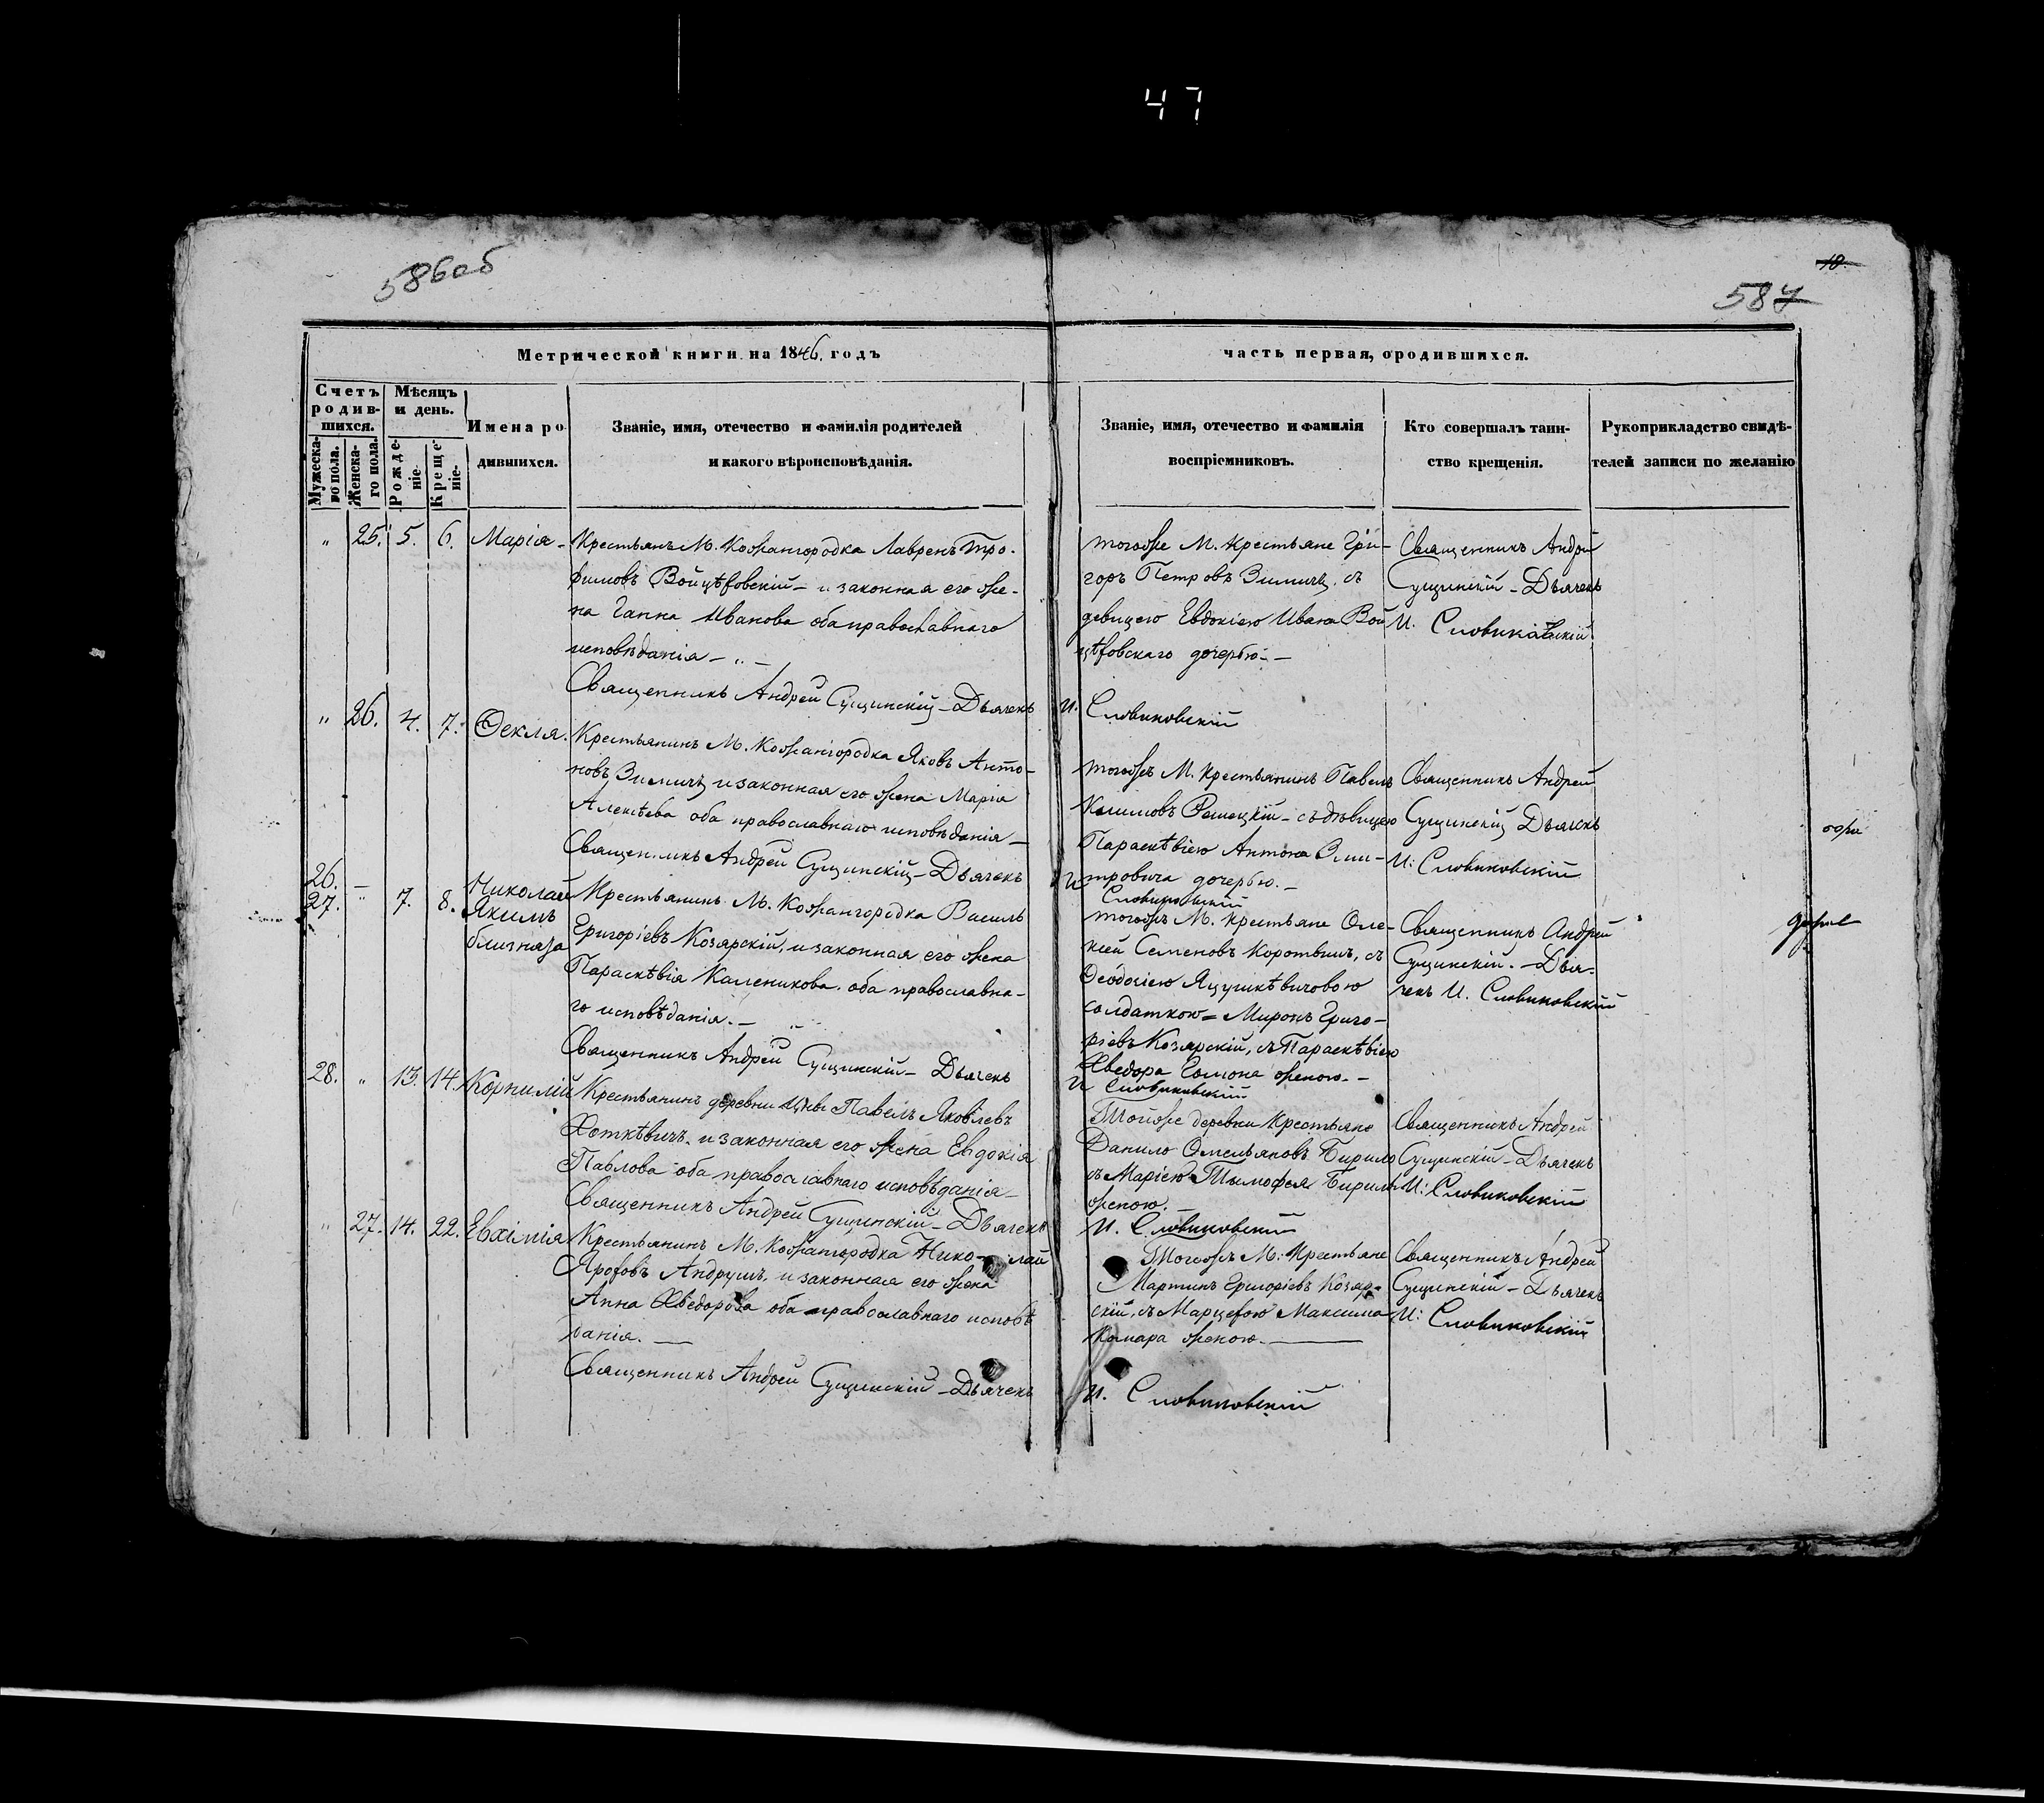 47
586об
18.
587
Метрической книги на 1846. годъ
часть первая, о родившихся.
Счетъ родив-шихся.
Мужеска-го пола.
Женска-го пола.
Мѣсяцъ и день.
Рожде-ніе.
Креще-ніе.
Имена ро-
дившихся.
Званіе, имя, отечество и фамилія родителей
и какого вѣроисповѣданія.
Званіе, имя, отечество и фамилія
воспріемниковъ.
Кто совершалъ таин-
ство крещенія.
Рукоприкладство свидѣ-
телей записи по желанію
" 25. 5. 6. Марія –
Крестьянъ М. Кожангородка Лавренъ Тро-
фимовъ Войцѣховскій – и законная его же-
на Ганна Иванова оба православнаго
исповѣданія – " –
Священникъ Андрей Сущинскій – Дьячекъ
тогоже М. Крестьяне Гри-
горъ Петровъ Зимичъ, съ
девицею Евдокіею Ивана Вой
цѣховскаго дочерью. –
И. Словиковскій
Священникъ Андрей
Сущинскій – Дьячекъ
И. Словиковскій
" 26. 4. 7. Ѳекля.
Крестьянинъ М. Кожангородка Яковъ Анто-
новъ Зимичъ и законная его жена Марія
Алексѣева оба православнаго исповѣданія –
Священникъ Андрей Сущинскій – Дьячекъ
тогожъ М. Крестьянинъ Павелъ
Климовъ Решецкій – съ дѣвицею
Параскѣвіею Антона Зми-
тровича дочерью. –
И Словиковскій
Священникъ Андрей
Сущинскій Дьячекъ
И: Словиковскій
26. –
27. " 7. 8. Николай
Якимъ
близняза
Крестьянинъ М. Кожангородка Василь
Григоріевъ Козярскій, и законная его жена
Параскѣвія Каленикова оба православна-
го исповѣданія. – "
Священникъ Андрей Сущинскій – Дьячекъ
тогожъ М. Крестьяне Оле-
ксей Семеновъ Коротышъ, съ
Ѳеодосіею Яцушкѣвичовою
солдаткою = Миронъ Григо-
ріевъ Козярскій, съ Параскѣвіею
Хведора Гамона женою. –
И Словиковскій
Священникъ Андрей
Сущинскій. – Дья-
чекъ И. Словиковскій
28. " 13. 14. Корнилій
Крестьянинъ деревни Цны Павелъ Яковлевъ
Хоткѣвичъ. и законная его жена Евдокія
Павлова оба православнаго исповѣданія –
Священникъ Андрей Сущинскій – Дьячекъ
Тойже деревни Крестьяне
Данило Омельяновъ Бирило
съ Маріею Тымофея Бирила
женою. –
И. Словиковскій
Священникъ Андрей
Сущинскій – Дьячекъ
И: Словиковскій
" 27. 14. 22. Евхимія
Крестьянинъ М. Кожангородка Нико-лай
Ярофовъ Андрушъ. и законная его жена
Анна Хведорова оба православнаго исповѣ
данія. –
Священникъ Андрей Сущинскій – Дьячекъ
Тогожъ М. Крестьяне
Мартинъ Григоріевъ Козяр-
скій, съ Марцехою Максима
Комара женою. –
И. Словиковскій
Священникъ Андрей
Сущинскій – Дьячекъ
И: Словиковскій